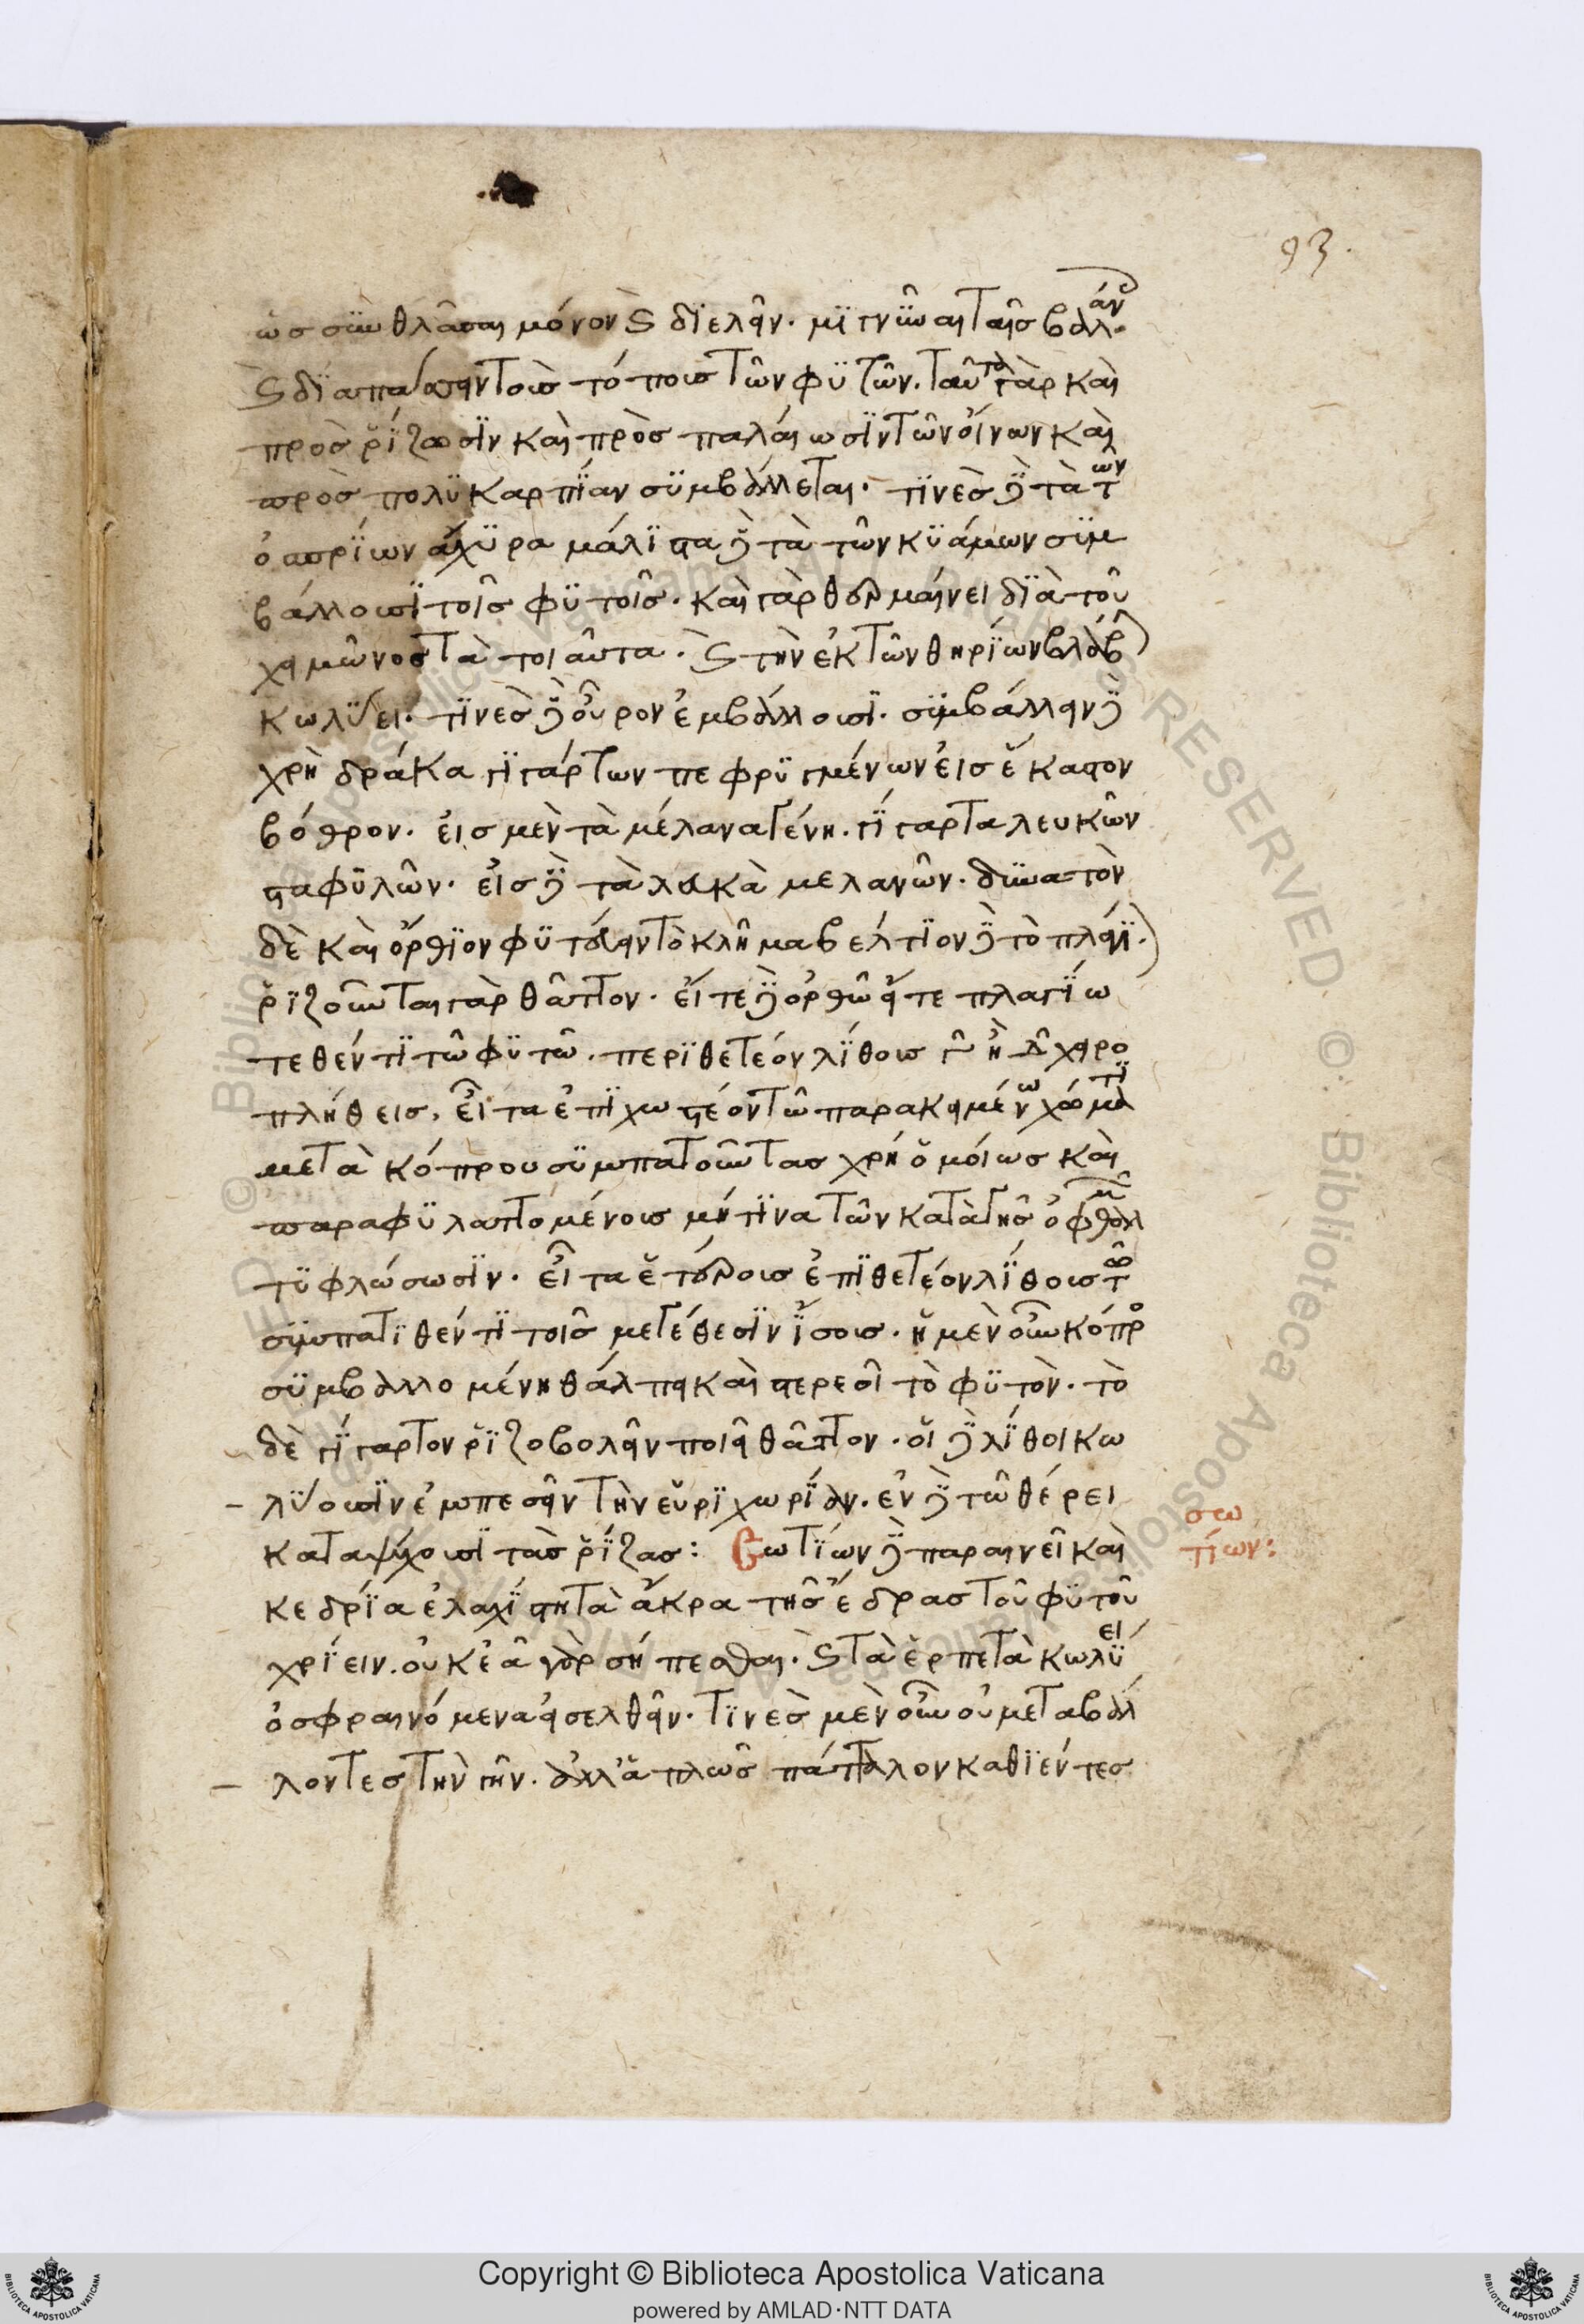 93.
ὡς συνθλᾶσαι μόνον καὶ διελεῖν. μιγνύναι ταῖς βαλάνοις
καὶ διασπαίρειν τοῖς τόποις τῶν φυτῶν. ταῦτα γὰρ καὶ
πρὸς ῥίζωσιν καὶ πρὸς παλαίωσιν τῶν οἴνων καὶ
πρὸς πολυκαρπίαν συμβάλλεται. τινὲς δὲ τὰ τῶν
ὀσπρίων ἄχυρα μάλιστα δὲ τὰ τῶν κυάμων συμ
βάλλουσι τοῖς φυτοῖς. καὶ γὰρ θερμαίνει διὰ τοῦ
χειμῶνος τὰ τοιαῦτα. καὶ τὴν ἐκ τῶν θηρίων βλάβην
κωλύει. τινὲς δὲ οὖρον ἐμβάλλουσι. συμβάλλειν δὲ
χρὴ δράκα γιγάρτων πεφρυγμένων εἰς ἕκαστον
βόθρον. εἰς μὲν τὰ μέλανα γένη. γίγαρτα λευκῶν
σταφυλῶν. εἰς δὲ τὰ λευκὰ μελανῶν. δυνατὸν
δὲ καὶ ὄρθιον φυτεύειν τὸ κλῆμα βέλτιον δὲ τὸ πλάγιον
ῥιζοῦνται γὰρ θᾶττον. εἴτε δὲ ὀρθῶ εἴτε πλαγίω
τεθέντι τῶ φυτῶ. περιθετέον λίθοις γ ἢ δ χειρο
πλήθεις, εἶτα ἐπιχωστέον τῶ παρακειμένω χώματι
μετὰ κόπρου συμπατοῦντας χρὴ ὁμοίως καὶ
παραφυλαττομένοις μή τινα τῶν κατὰ γῆς ὀφθαλμῶν
τυφλώσωσιν. εἶτα ἑτέροις ἐπιθετέον λίθοις τῶ
συμπατιθέντι τοῖς μεγέθεσιν ἴσοις. ἡ μὲν οὖν κόπρος
συμβαλλομένη θάλπει καὶ στερεοῖ τὸ φυτὸν. τὸ
δὲ γίγαρτον ῥιζοβολεῖν ποιεῖ θᾶττον. οἱ δὲ λίθοι κω
λύουσιν ἐμπεσεῖν τὴν εὐριχωρίαν. ἐν δὲ τῶ θέρει
καταψύχουσι τὰς ῥίζας: Σωτίων δὲ παραινεῖ καὶ
κεδρία ἐλαχίστη τὰ ἄκρα τῆς ἕδρας τοῦ φυτοῦ
χρίειν. οὐκ ἐᾶ γὰρ σήπεσθαι. καὶ τὰ ἑρπετὰ κωλύει
ὀσφραινόμενα εἰσελθεῖν. τινὲς μὲν οὖν οὐ μεταβάλ
λοντες τὴν γῆν. ἀλλ' ἁπλῶς πάτταλον καθιέντες
σω
τίων:
Copyright © Biblioteca Apostolica Vaticana
powered by AMLAD·NTT DATA